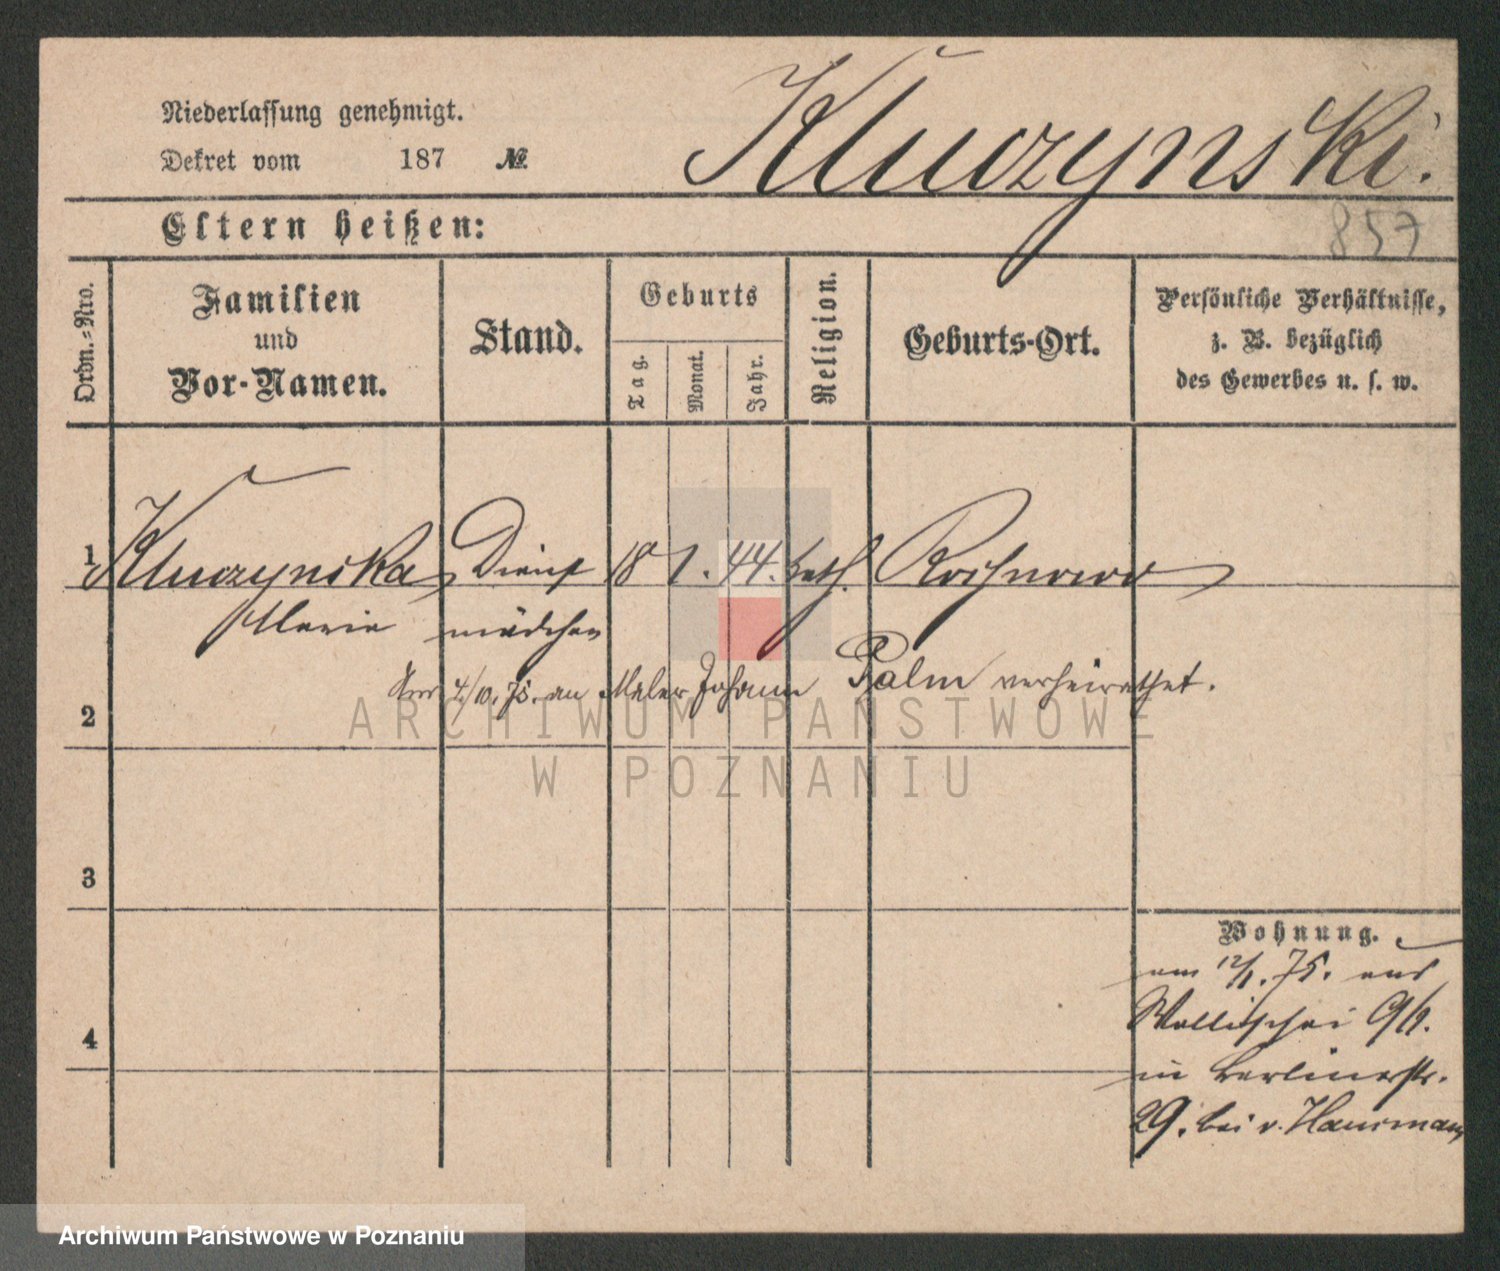 Niederlassung genehmigt.
Dekret vom 187 №
Kluczynski.
857
Eltern heißen:
Ordn.-Nro.
Familien
und
Vor-Namen.
Stand.
Geburts
Tag.
Monat.
Jahr.
Religion.
Geburts-Ort.
Persönliche Verhältnisse,
z. B. bezüglich
des Gewerbes u. s. w.
1 Kluczynska Dienst 18 1. 44. kath. Rosnowo
Marie mädchen
4./10. 75. an Maler Johann Palm verheirathet.
2
3
4
Wohnung.
am 12/1. 75. aus
Wallischei 9/.
in Berlinerstr.
29. bei v. Hausmann
ARCHIWUM PAŃSTWOWE
W POZNANIU
Archiwum Państwowe w Poznaniu